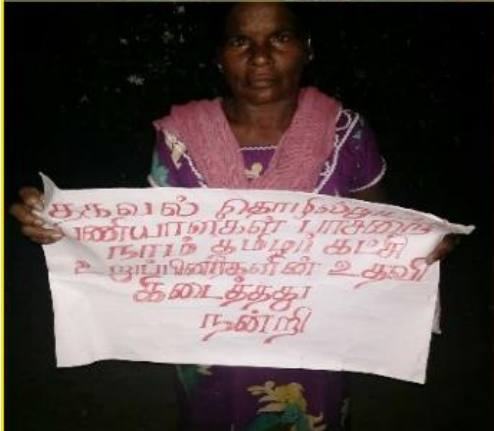 தகவல் தொழில்நுட்ப
பணியாளர்கள் பாசறை
நாம் தமிழர் கட்சி
உறுப்பினர்களின் உதவி
கிடைத்தது
நன்றி